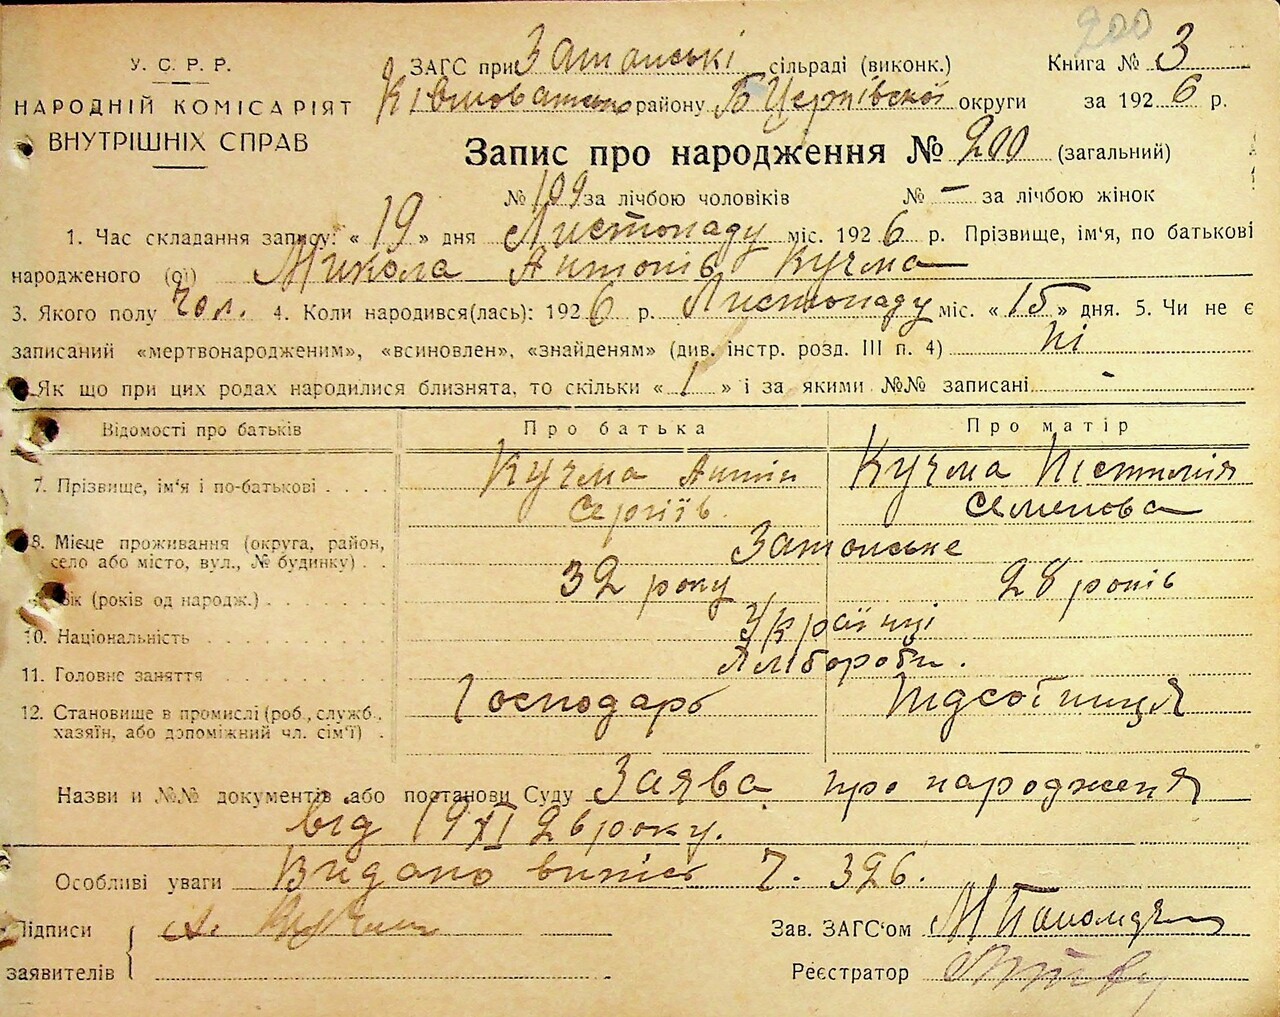 200
У. С. Р. Р.
НАРОДНІЙ КОМІСАРІЯТ
ВНУТРІШНІХ СПРАВ
ЗАГС при Затонські сільраді (виконк.) Книга № 3
району Б Церківської округи за 1926 р.
Запис про народження № 200 (загальний)
№ 109 за лічбою чоловіків № – за лічбою жінок
1. Час складання запису: « 19 » дня Листопаду міс. 1926 р. Прізвище, ім'я, по батькові
народженого (ої) Микола Антонів Кучма
3. Якого полу чол. 4. Коли народився(лась): 1926 р. Листопаду міс. « 15 » дня. 5. Чи не є
записаний «мертвонародженим», «всиновлен», «знайденям» (див. інстр. розд. III п. 4) ні
Як що при цих родах народилися близнята, то скільки « 1 » і за якими №№ записані -
Відомості про батьків Про батька Про матір
7. Прізвище, ім'я і по-батькові Кучма Антін Кучма
Сергіїв. Семенова
8. Місце проживання (округа, район, Затонське
село або місто, вул., № будинку)
Вік (років од народж.) 32 року 28 років
10. Національність Українці
11. Головне заняття Хлібороби.
12. Становище в промислі (роб., служб., Господарь
хазяїн, або допоміжний чл. сім'ї)
Назви и №№ документів або постанови Суду Заява про народження
від 19 XI 26 року.
Особливі уваги Видано випис ч. 326.
Підписи А. Кучма Зав. ЗАГС'ом
заявителів Реєстратор